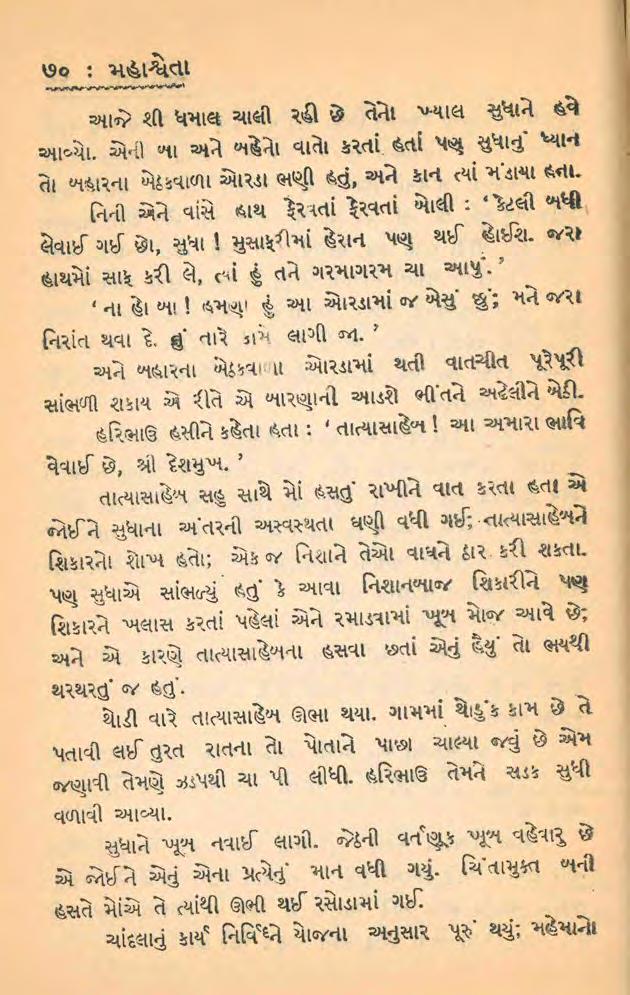 ૭૦ : મહાશ્વેતા
આજે શી ધમાલ ચાલી રહી છે તેનો ખ્યાલ સુધાને હવે
આવ્યો. એની બા અને બહેનો વાતો કરતાં હતાં પણ સુધાનું ધ્યાન
તો બહારના બેઠકવાળા ઓરડા ભણી હતું, અને કાન ત્યાં મંડાયા હતા.
નિની એને વાંસે હાથ ફેરવતાં ફેરવતાં બોલી : ‘ કેટલી બધી
લેવાઈ ગઈ છો, સુધા ! મુસાફરીમાં હેરાન પણ થઈ હોઈશ. જરા
હાથમોં સાફ કરી લે, ત્યાં હું તને ગરમાગરમ ચા આપું. ’
‘ ના હો બા ! હમણાં હું આ ઓરડામાં જ બેસું છું; મને જરા
નિરાંત થવા દે. તું તારે કામે લાગી જા. ’
અને બહારના બેઠકવાળા ઓરડામાં થતી વાતચીત પૂરેપૂરી
સાંભળી શકાય એ રીતે એ બારણાની આડશે ભીંતને અઢેલીને બેઠી.
હરિભાઉ હસીને કહેતા હતા : ‘ તાત્યાસાહેબ ! આ અમારા ભાવિ
વેવાઈ છે, શ્રી દેશમુખ. ’
તાત્યાસાહેબ સહુ સાથે મોં હસતું રાખીને વાત કરતા હતા એ
જોઈને સુધાના અંતરની અસ્વસ્થતા ઘણી વધી ગઈ; તાત્યાસાહેબને
શિકારનો શોખ હતો; એક જ નિશાને તેઓ વાઘને ઠાર કરી શકતા.
પણ સુધાએ સાંભળ્યું હતું કે આવા નિશાનબાજ શિકારીને પણ
શિકારને ખલાસ કરતાં પહેલાં એને રમાડવામાં ખૂબ મોજ આવે છે;
અને એ કારણે તાત્યાસાહેબના હસવા છતાં એનું હૈયું તો ભયથી
થરથરતું જ હતું.
થોડી વારે તાત્યાસાહેબ ઊભા થયા. ગામમાં થોડુંક કામ છે તે
પતાવી લઈ તુરત રાતના તો પોતાને પાછા ચાલ્યા જવું છે એમ
જણાવી તેમણે ઝડપથી ચા પી લીધી. હરિભાઉ તેમને સડક સુધી
વળાવી આવ્યા.
સુધાને ખૂબ નવાઈ લાગી. જેઠની વર્તણૂક ખૂબ વહેવારુ છે
એ જોઈને એનું એના પ્રત્યેનું માન વધી ગયું. ચિંતામુક્ત બની
હસતે મોંએ તે ત્યાંથી ઊભી થઈ રસોડામાં ગઈ.
ચાંદલાનું કાર્ય નિર્વિઘ્ને યોજના અનુસાર પૂરું થયું; મહેમાનો